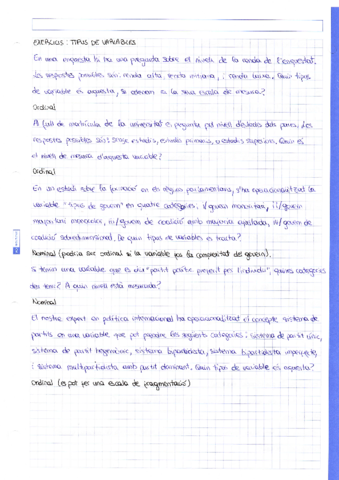 EXERCICIS: TIPUS DE VARIABLES
En una enquesta hi ha una pregunta sobre el nivell de la renda de l'enquestat.
Les respostes possibles són: renda alta, renda mitjana, i renda baixa. Quin tipus
de variable és aquesta, si atenem a la seva escala de mesura?
Ordinal
Al full de matrícula de la universitat es pregunta pel nivell d'estudis dels pares. Les
respostes possibles són: sense estudis, estudis primaris, o estudis superiors. Quin és
el nivell de mesura d'aquesta variable?
Ordinal
En un estudi sobre la formació en règim parlamentari, s'ha operacionalitzat la
variable "tipus de govern" en quatre categories: i/govern monoritari, ii/govern
majoritari monocolor, iii/govern de coalició amb majoria ajustada, iiii/govern de
coalició sobredimensional. De quin tipus de variables es tracta?
Nominal (podria ser ordinal si la variable fos la complexitat del govern)
Si tenim una variable que es diu "partit polític preferit per l'individu", quines categories
des tenir? A quin nivell està mesurada?
Nominal
El nostre expert en política internacional ha operacionalitzat el concepte sistema de
partits en una variable que pot prendre les següents categories: sistema de partit únic,
sistema de partit hegemònic, sistema bipartidista, sistema bipartidista imperfecte,
i sistema multipartidista amb partit dominant. Quin tipus de variable és aquesta?
Ordinal (es pot fer una escala de fragmentació)